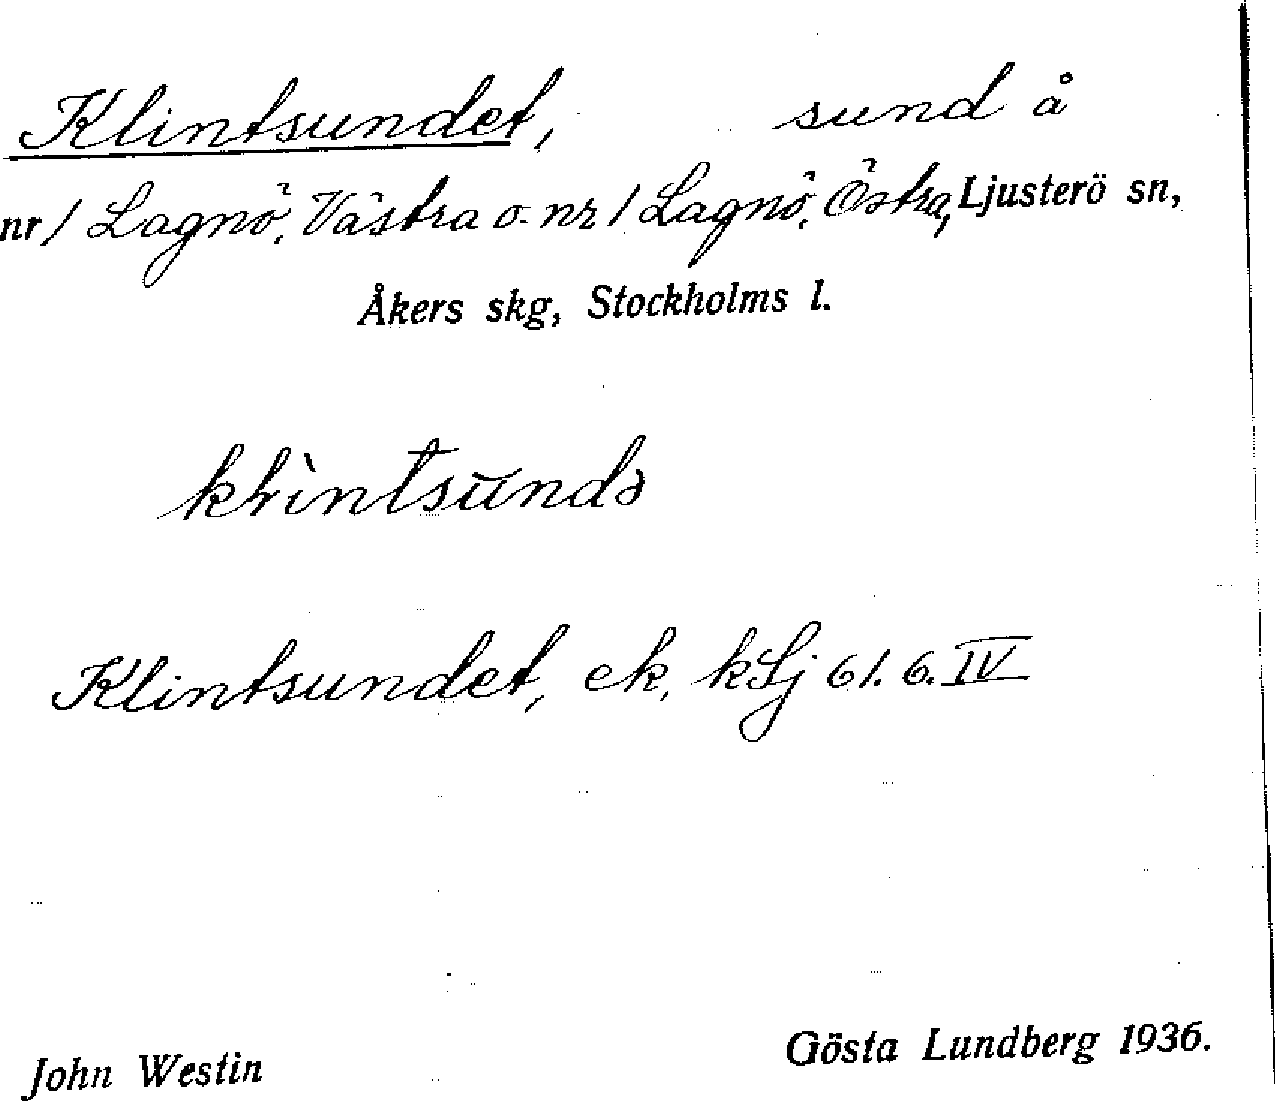 Klintsundet, sund å
nr 1 Lagnö, Västra o. nr 1 Lagnö, Östra, Ljusterö sn,
Åkers skg, Stockholms l.
Klintsundet, ek. kLj 61. 6. IV
John Westin
Gösta Lundberg 1936.